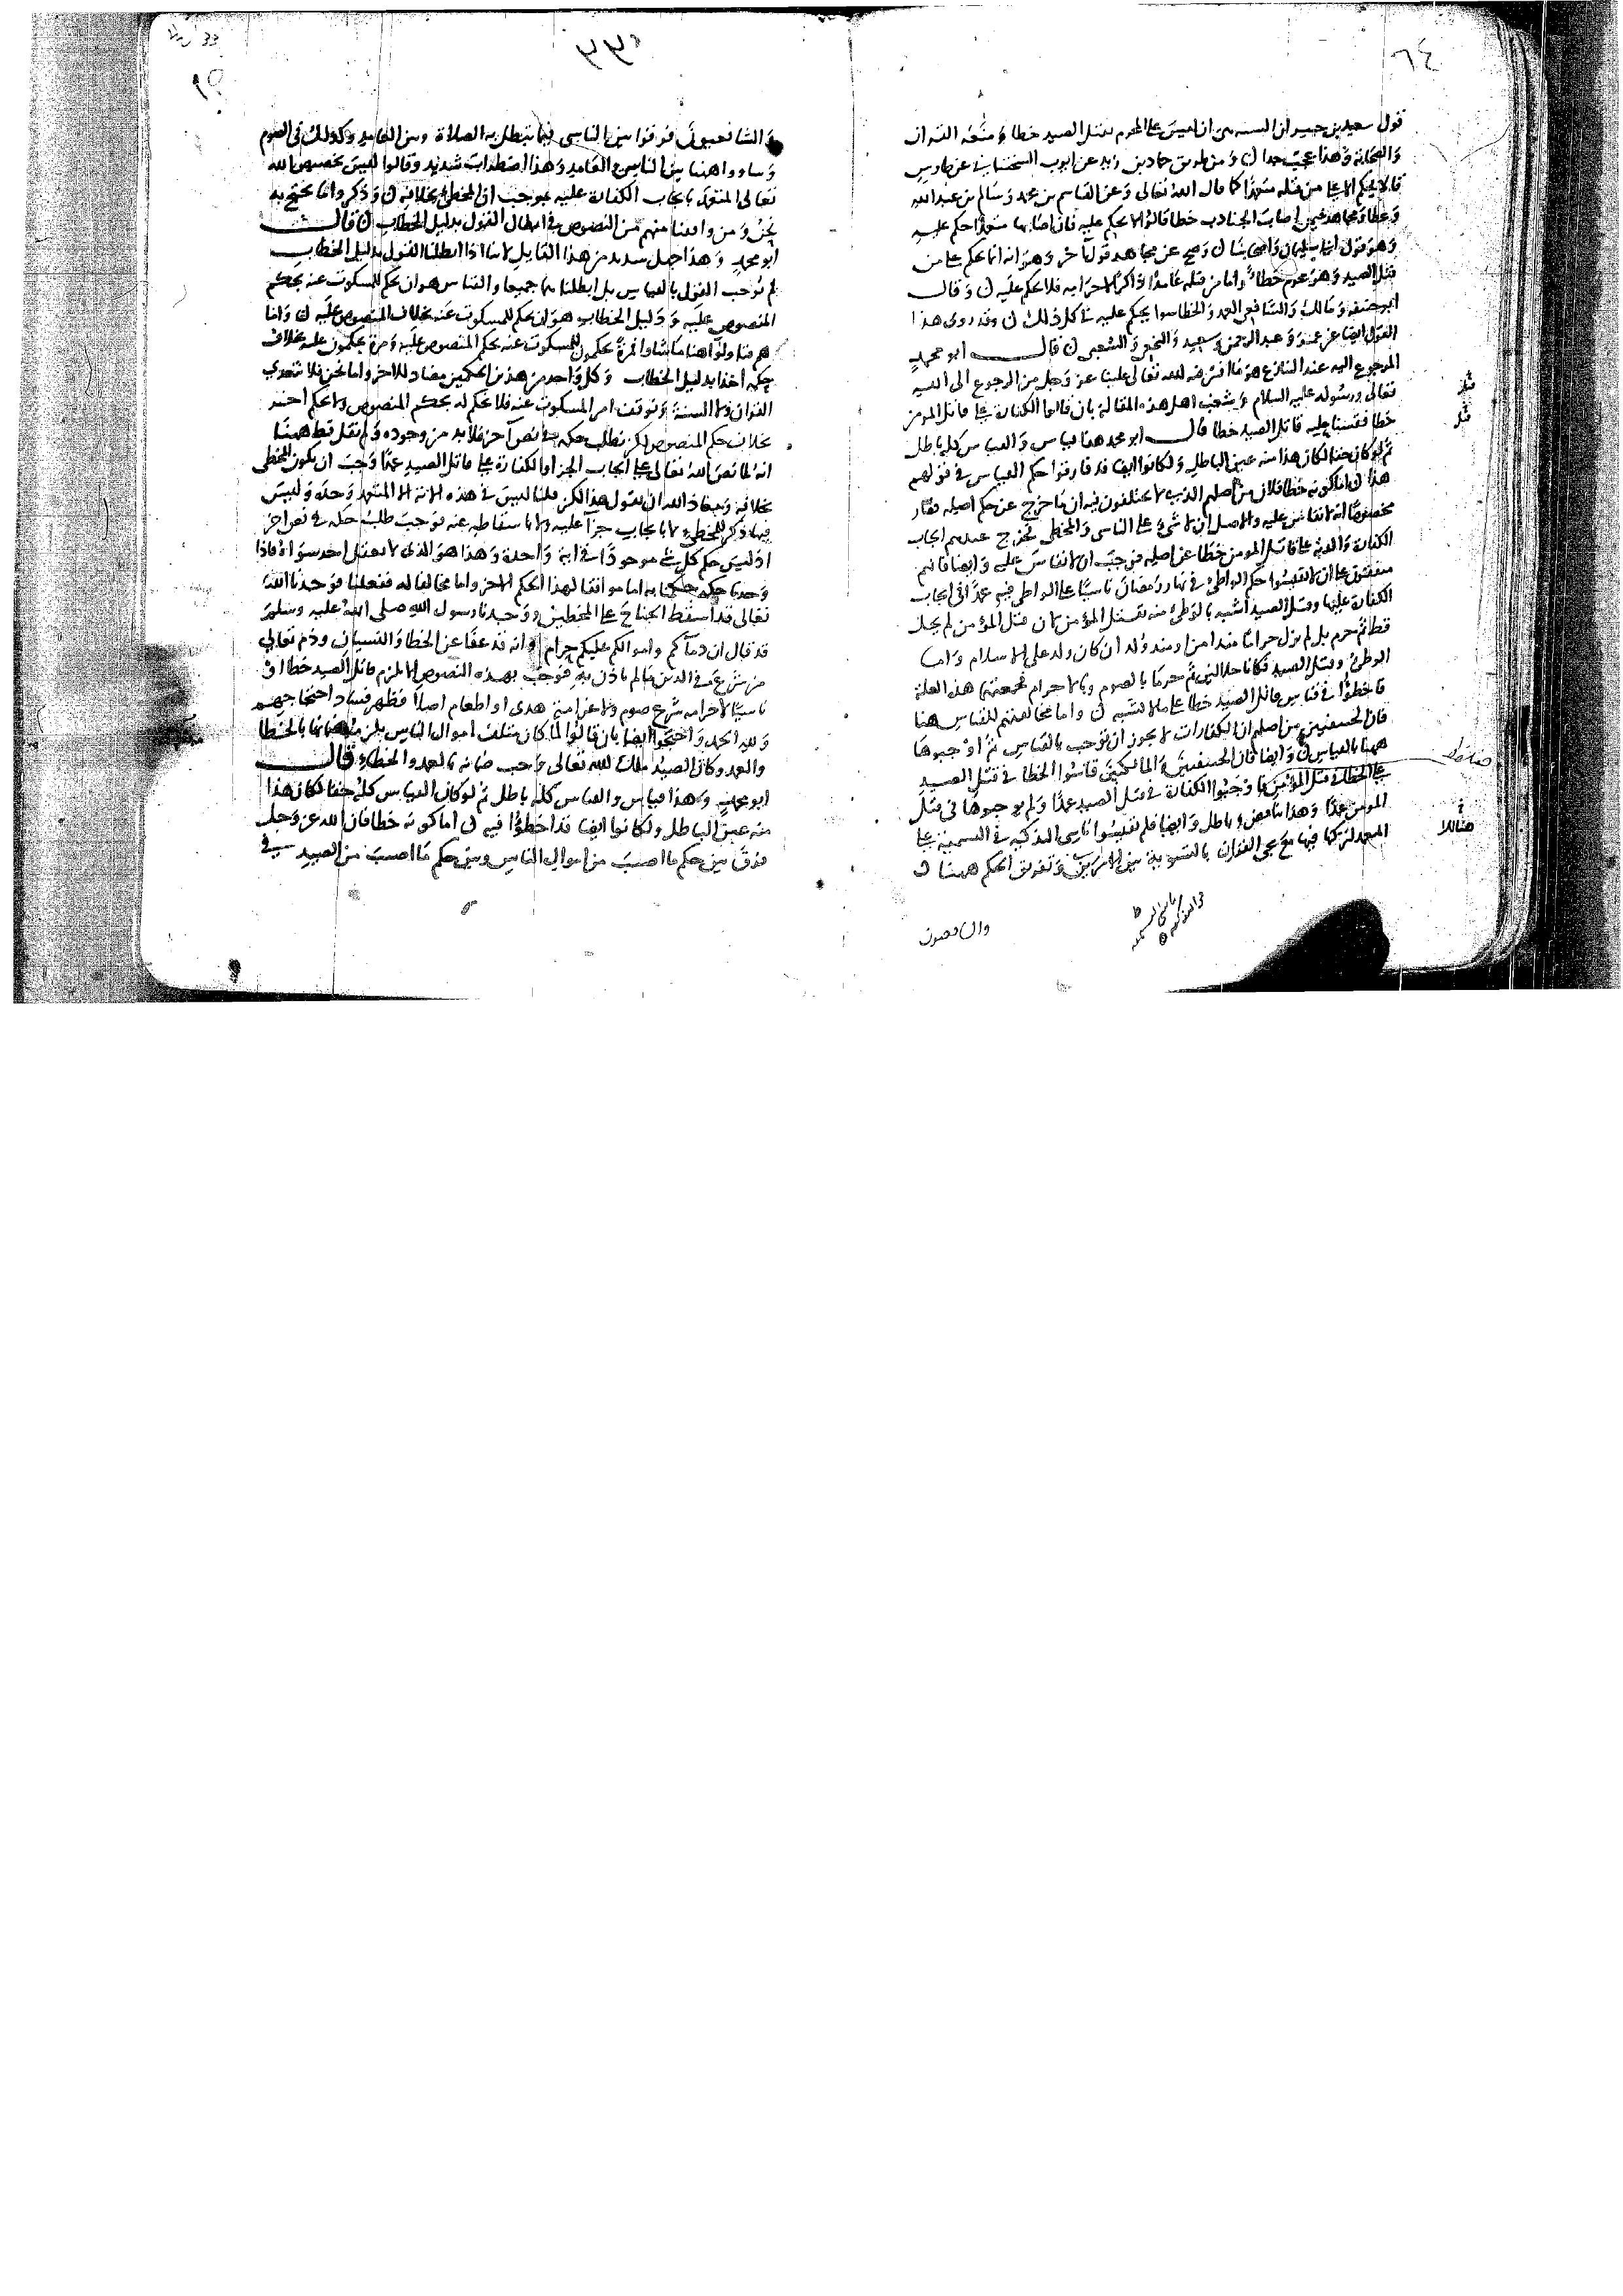 ٦٤
قول سعيد بن جبير ان السنه من ان ليس على المحرم بقتل الصيد خطا ومنعه القران
والصحابة وهذا عجيب جدا ومن طريق حماد بن زيد عن ايوب السختياني عن طاوس
قال لا يحكم الا على من قتله متعمدا كما قال الله تعالى وعن القاسم بن محمد وسالم بن عبد الله
وعطا ومجاهد فيمن اصاب الجنادب خطا قالوا لا يحكم عليه فان اصابها متعمدا حكم عليه
وهو قول ابي سليمان واصحابنا وصح عن مجاهد قول اخر وهو انه انما يحكم على من
قتل الصيد وهو محرم خطا واما من قتله عامدا ذاكرا لاحرامه فلا يحكم عليه وقال
ابو حنيفه ومالك والشافعي العمد والخطا سوا يحكم عليه في كل ذلك وقد روي هذا
القول ايضا عن عمر وعبد الرحمن وسعيد والنخعي والشعبي قال ابو محمد
المرجوع اليه عند التنازع هو ما افترضه الله تعالى علينا عز وجل من الرجوع الى الله
تعالى ورسوله عليه السلام وشغب اهل هذه المقالة بان قالوا الكفارة على قاتل المومن
خطا فقسنا عليه قاتل الصيد خطا قال ابو محمد هذا قياس والقياس كله باطل
ثم لو كان حقا لكان هذا منه عين الباطل ولكانوا ايضا قد فارقوا حكم القياس في قولهم
هذا اما كونه خطا فلان من اصلهم الذي لا يختلفون فيه ان ما خرج عن حكم اصله فصار
مخصوصا انه لا يقاس عليه والاصل ان لا شيء على الناسي والمخطي فخرج عندهم ايجاب
الكفارة والدية على قاتل المومن خطا عن اصله فوجب ان لا يقاس عليه وايضا فانهم
متفقون على ان لا يقيسوا حكم الواطي في نهار رمضان ناسيا على الواطي فيه عمدا في ايجاب
الكفارة عليهما وقتل الصيد اشبه بالوطي منه بقتل المؤمن لان قتل المؤمن لم يحل
قط ثم حرم بل لم يزل حراما منذ امن او منذ ولد ان كان ولد على الاسلام واما
الوطئ وقتل الصيد فكانا حلالين ثم حرما بالصوم وبالاحرام فجمعتهما هذه العلة
فاخطؤا في قياس قاتل الصيد خطا على ما لا يشبهه واما مخالفتهم للقياس هنا
فان الحنفيين من اصلهم ان الكفارات لا يجوز ان توجب بالقياس ثم اوجبوها
ههنا بالقياس وايضا فان الحنفيين والمالكيين قاسوا الخطا في قتل الصيد
على الخطا في قتل المؤمن فاوجبوا الكفارة في قتل الصيد عمدا ولم يوجبوها في قتل
المومن عمدا وهذا تناقض وباطل وايضا فلم يقيسوا ناسي التسمية في التذكية على
المتعمد لتركها فيها مع مجي القران بالتسوية بين الامرين وتفريق الحكم ههنا
والشافعيون
٣٣
والشافعيون فرقوا بين الناسي فيما تبطل به الصلاة وبين العامد وكذلك في الصوم
وساووا ههنا بين الناسي والعامد وهذا اضطراب شديد وقالوا ليس تخصيص الله
تعالى المتعمد بايجاب الكفارة عليه بموجب ان المخطئ بخلافه وذكروا ما يحتج به
نحن ومن وافقنا منهم من النصوص في ابطال القول بدليل الخطاب قال
ابو محمد وهذا جهل شديد من هذا القايل لاننا اذا ابطلنا القول بدليل الخطاب
لم نوجب القول بالقياس بل ابطلناهما جميعا والقياس هو ان يحكم للمسكوت عنه بحكم
المنصوص عليه ودليل الخطاب هو ان يحكم للمسكوت عنه بخلاف المنصوص عليه وانما
هم تناولوا هنا ما شاوا فمرة يحكمون للمسكوت عنه بحكم المنصوص عليه ومرة يحكمون عليه بخلاف
حكمه اخذا بدليل الخطاب وكل واحد من هذين الحكمين مضاد للاخر واما نحن فلا نتعدي
القران ولا السنة ونوقف امر المسكوت عنه فلا نحكم له بحكم المنصوص ولا بحكم اخر
بخلاف حكم المنصوص لكن نطلب حكمه في نص آخر فلا بد من وجوده ولم نقل قط ههنا
انه لما نص الله تعالى على ايجاب الجزا والكفارة على قاتل الصيد عمدا وجب ان يكون المخطي
بخلافه ومعاذ الله ان نقول هذا لكن قلنا ليس في هذه الاية الا المتعمد وحده وليس
فيها ذكر للمخطئ لا بايجاب جزآ عليه ولا باسقاطه عنه فوجب طلب حكمه في نص اخر
اذ ليس حكم كل شي موجودا في اية واحدة وهذا هو الذي لا يعقل احد سواه فاذا
وجدنا حكمه حكمنا به اما موافقا لهذا الحكم الاخر واما مخالفا له ففعلنا فوجدنا الله
تعالى قد اسقط الجناح على المخطئين ووجدنا رسول الله صلى الله عليه وسلم
قد قال ان دمآكم واموالكم عليكم حرام وانه قد عفا عن الخطا والنسيان وذم تعالى
من شرع في الدين ما لم ياذن به فوجب بهذه النصوص الا يلزم قاتل الصيد خطا او
ناسيا لاحرامه شرع صوم ولا غرامة هدى او اطعام اصلا فظهر فساد احتجاجهم
ولله الحمد واحتجوا ايضا بان قالوا لما كان متلف اموال الناس يلزمه ضمانها بالخطا
والعمد وكان الصيد ملك لله تعالى وجب ضمانه بالعمد والخطا قال
ابو محمد وهذا قياس والقياس كله باطل ثم لو كان القياس كله حقا لكان هذا
منه عين الباطل ولكانوا ايضا قد اخطؤا فيه اما كونه خطا فان الله عز وجل
فرق بين حكم ما اصيب من اموال الناس وبين حكم ما اصيب من الصيد في